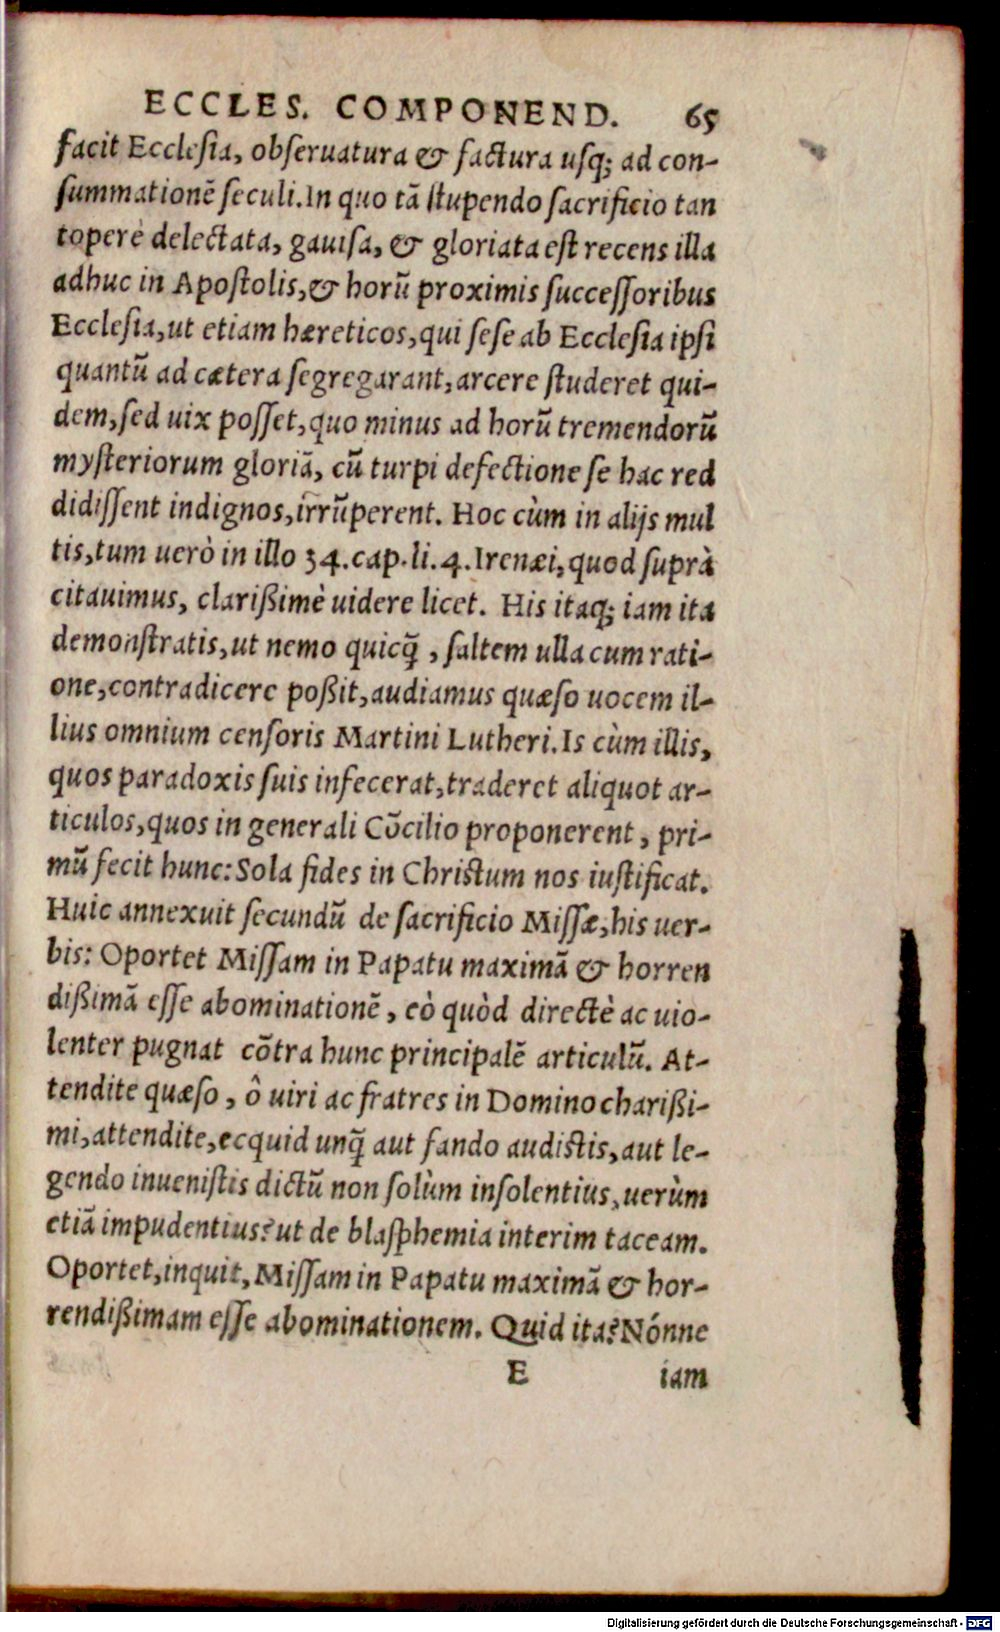 ECCLES. COMPONEND. 65
facit Ecclesia, obseruatura & factura usq; ad con-
summationē seculi. In quo tā stupendo sacrificio tan
topere delectata, gauisa, & gloriata est recens illa
adhuc in Apostolis, & horū proximis successoribus
Ecclesia, ut etiam hæreticos, qui sese ab Ecclesia ipsi
quantū ad cætera segregarant, arcere studeret qui-
dem, sed uix posset, quo minus ad horū tremendorū
mysteriorum gloriā, cū turpi defectione se hac red
didissent indignos, irrūperent. Hoc cùm in alijs mul
tis, tum uerò in illo 34. cap. li. 4. Irenæi, quod suprà
citauimus, clarißimè uidere licet. His itaq; iam ita
demonstratis, ut nemo quicq̄, saltem ulla cum rati-
one, contradicere poßit, audiamus quæso uocem il-
lius omnium censoris Martini Lutheri. Is cùm illis,
quos paradoxis suis infecerat, traderet aliquot ar-
ticulos, quos in generali Cōcilio proponerent, pri-
mū fecit hunc: Sola fides in Christum nos iustificat.
Huic annexuit secundū de sacrificio Missæ, his uer-
bis: Oportet Missam in Papatu maximā & horren
dißimā esse abominationē, eò quòd directè ac uio-
lenter pugnat cōtra hunc principalē articulū. At-
tendite quæso, ô uiri ac fratres in Domino charißi-
mi, attendite, ecquid unq̄ aut fando audistis, aut le-
gendo inuenistis dictū non solùm insolentius, uerùm
etiā impudentius? ut de blasphemia interim taceam.
Oportet, inquit, Missam in Papatu maximā & hor-
rendißimam esse abominationem. Quid ita? Nónne
E iam
Digitalisierung gefördert durch die Deutsche Forschungsgemeinschaft - DFG